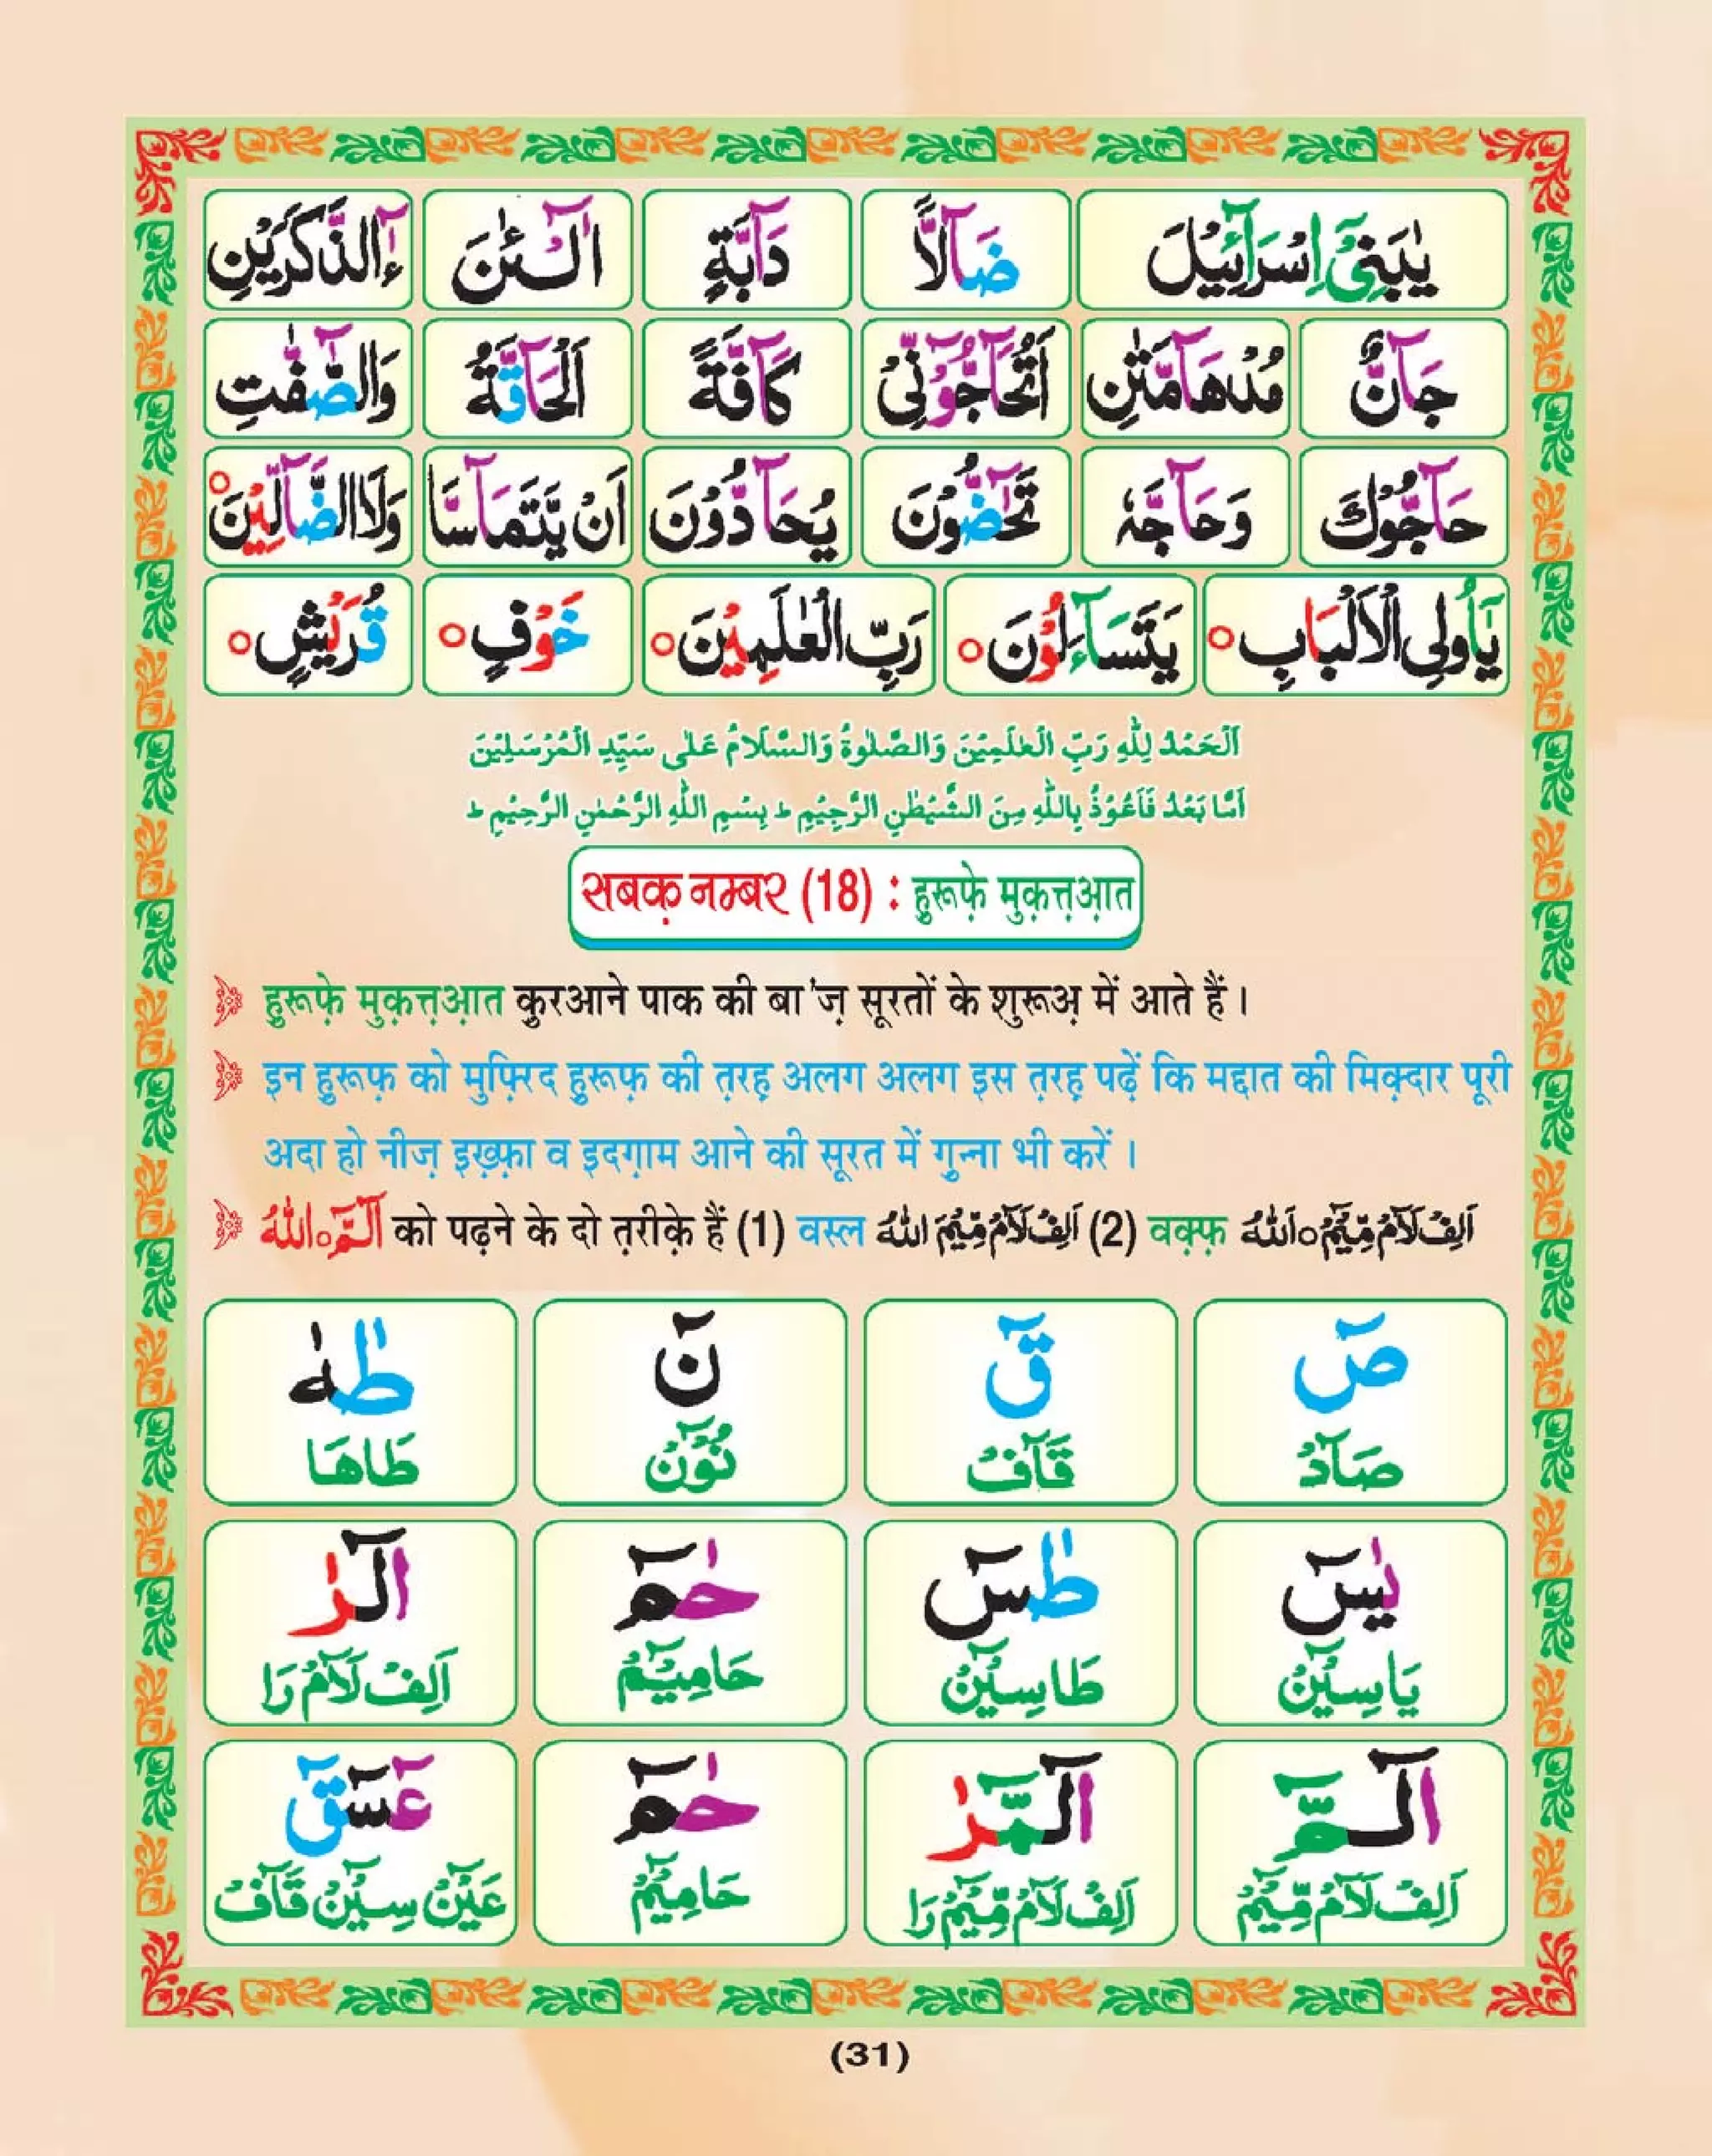 یٰبَنِیْۤ اِسْرَآءِیْلَ ضَآلًّا دَآبَّةٍ آٰلْـٰٔنَ ءٰٓالذَّكَرَیْنِ
جَآنٌّ مُدْهَآ مَّتٰنِ اَتُحَآجُّوْٓنِّیْ كَآفَّةً اَلْحَآقَّةُ وَالصّٰٓفّٰتِ
حَآجُّوْكَ وَحَآجَّهٗ تَحٰٓضُّوْنَ یُحَآدُّوْنَ اَنْ یَّتَمَآسَّا وَلَا الضَّآلِّیْنَ○
یٰۤاُولِی الْاَلْبَابِ○ یَتَسَآءَلُوْنَ○ رَبِّ الْعٰلَمِیْنَ○ خَوْفٍ○ قُرَیْشٍ○
اَلْحَمْدُ لِلّٰهِ رَبِّ الْعٰلَمِیْنَ وَالصَّلٰوةُ وَالسَّلَامُ عَلٰی سَیِّدِ الْمُرْسَلِیْنَ
اَمَّا بَعْدُ فَاَعُوْذُ بِاللّٰهِ مِنَ الشَّیْطٰنِ الرَّجِیْمِ ط بِسْمِ اللّٰهِ الرَّحْمٰنِ الرَّحِیْمِ ط
सबक़ नम्बर (18) : हुरूफ़े मुक़त्तआ़त
हुरूफ़े मुक़त्तआ़त कुरआने पाक की बा'ज़ सूरतों के शुरूअ़ में आते हैं।
इन हुरूफ़ को मुफ़्रिद हुरूफ़ की त़रह़ अलग अलग इस त़रह़ पढ़ें कि मद्दात की मिक़्दार पूरी
अदा हो नीज़ इख़्फ़ा व इदग़ाम आने की सूरत में गुन्ना भी करें।
الٓمَّٓ○اللّٰهُ को पढ़ने के दो त़रीक़े हैं (1) वस्ल اَلِفْ لَآمْ مِّیْمَ اللّٰهُ (2) वक़्फ़ اَلِفْ لَآمْ مِّیْٓمْ○اَللّٰهُ
صٓ قٓ نٓ طٰهٰ
صَآدْ قَآفْ نُوْٓنْ طَاهَا
یٰسٓ طٰسٓ حٰمٓ الٓرٰ
یَاسِیْٓنْ طَاسِیْٓنْ حَامِیْٓمْ اَلِفْ لَآمْ رَا
الٓمَّٓ الٓمّٓرٰ حٰمٓ عٓسٓقٓ
اَلِفْ لَآمْ مِّیْٓمْ اَلِفْ لَآمْ مِّیْٓمْ رَا حَامِیْٓمْ عَیْٓنْ سِیْٓنْ قَآفْ
(31)